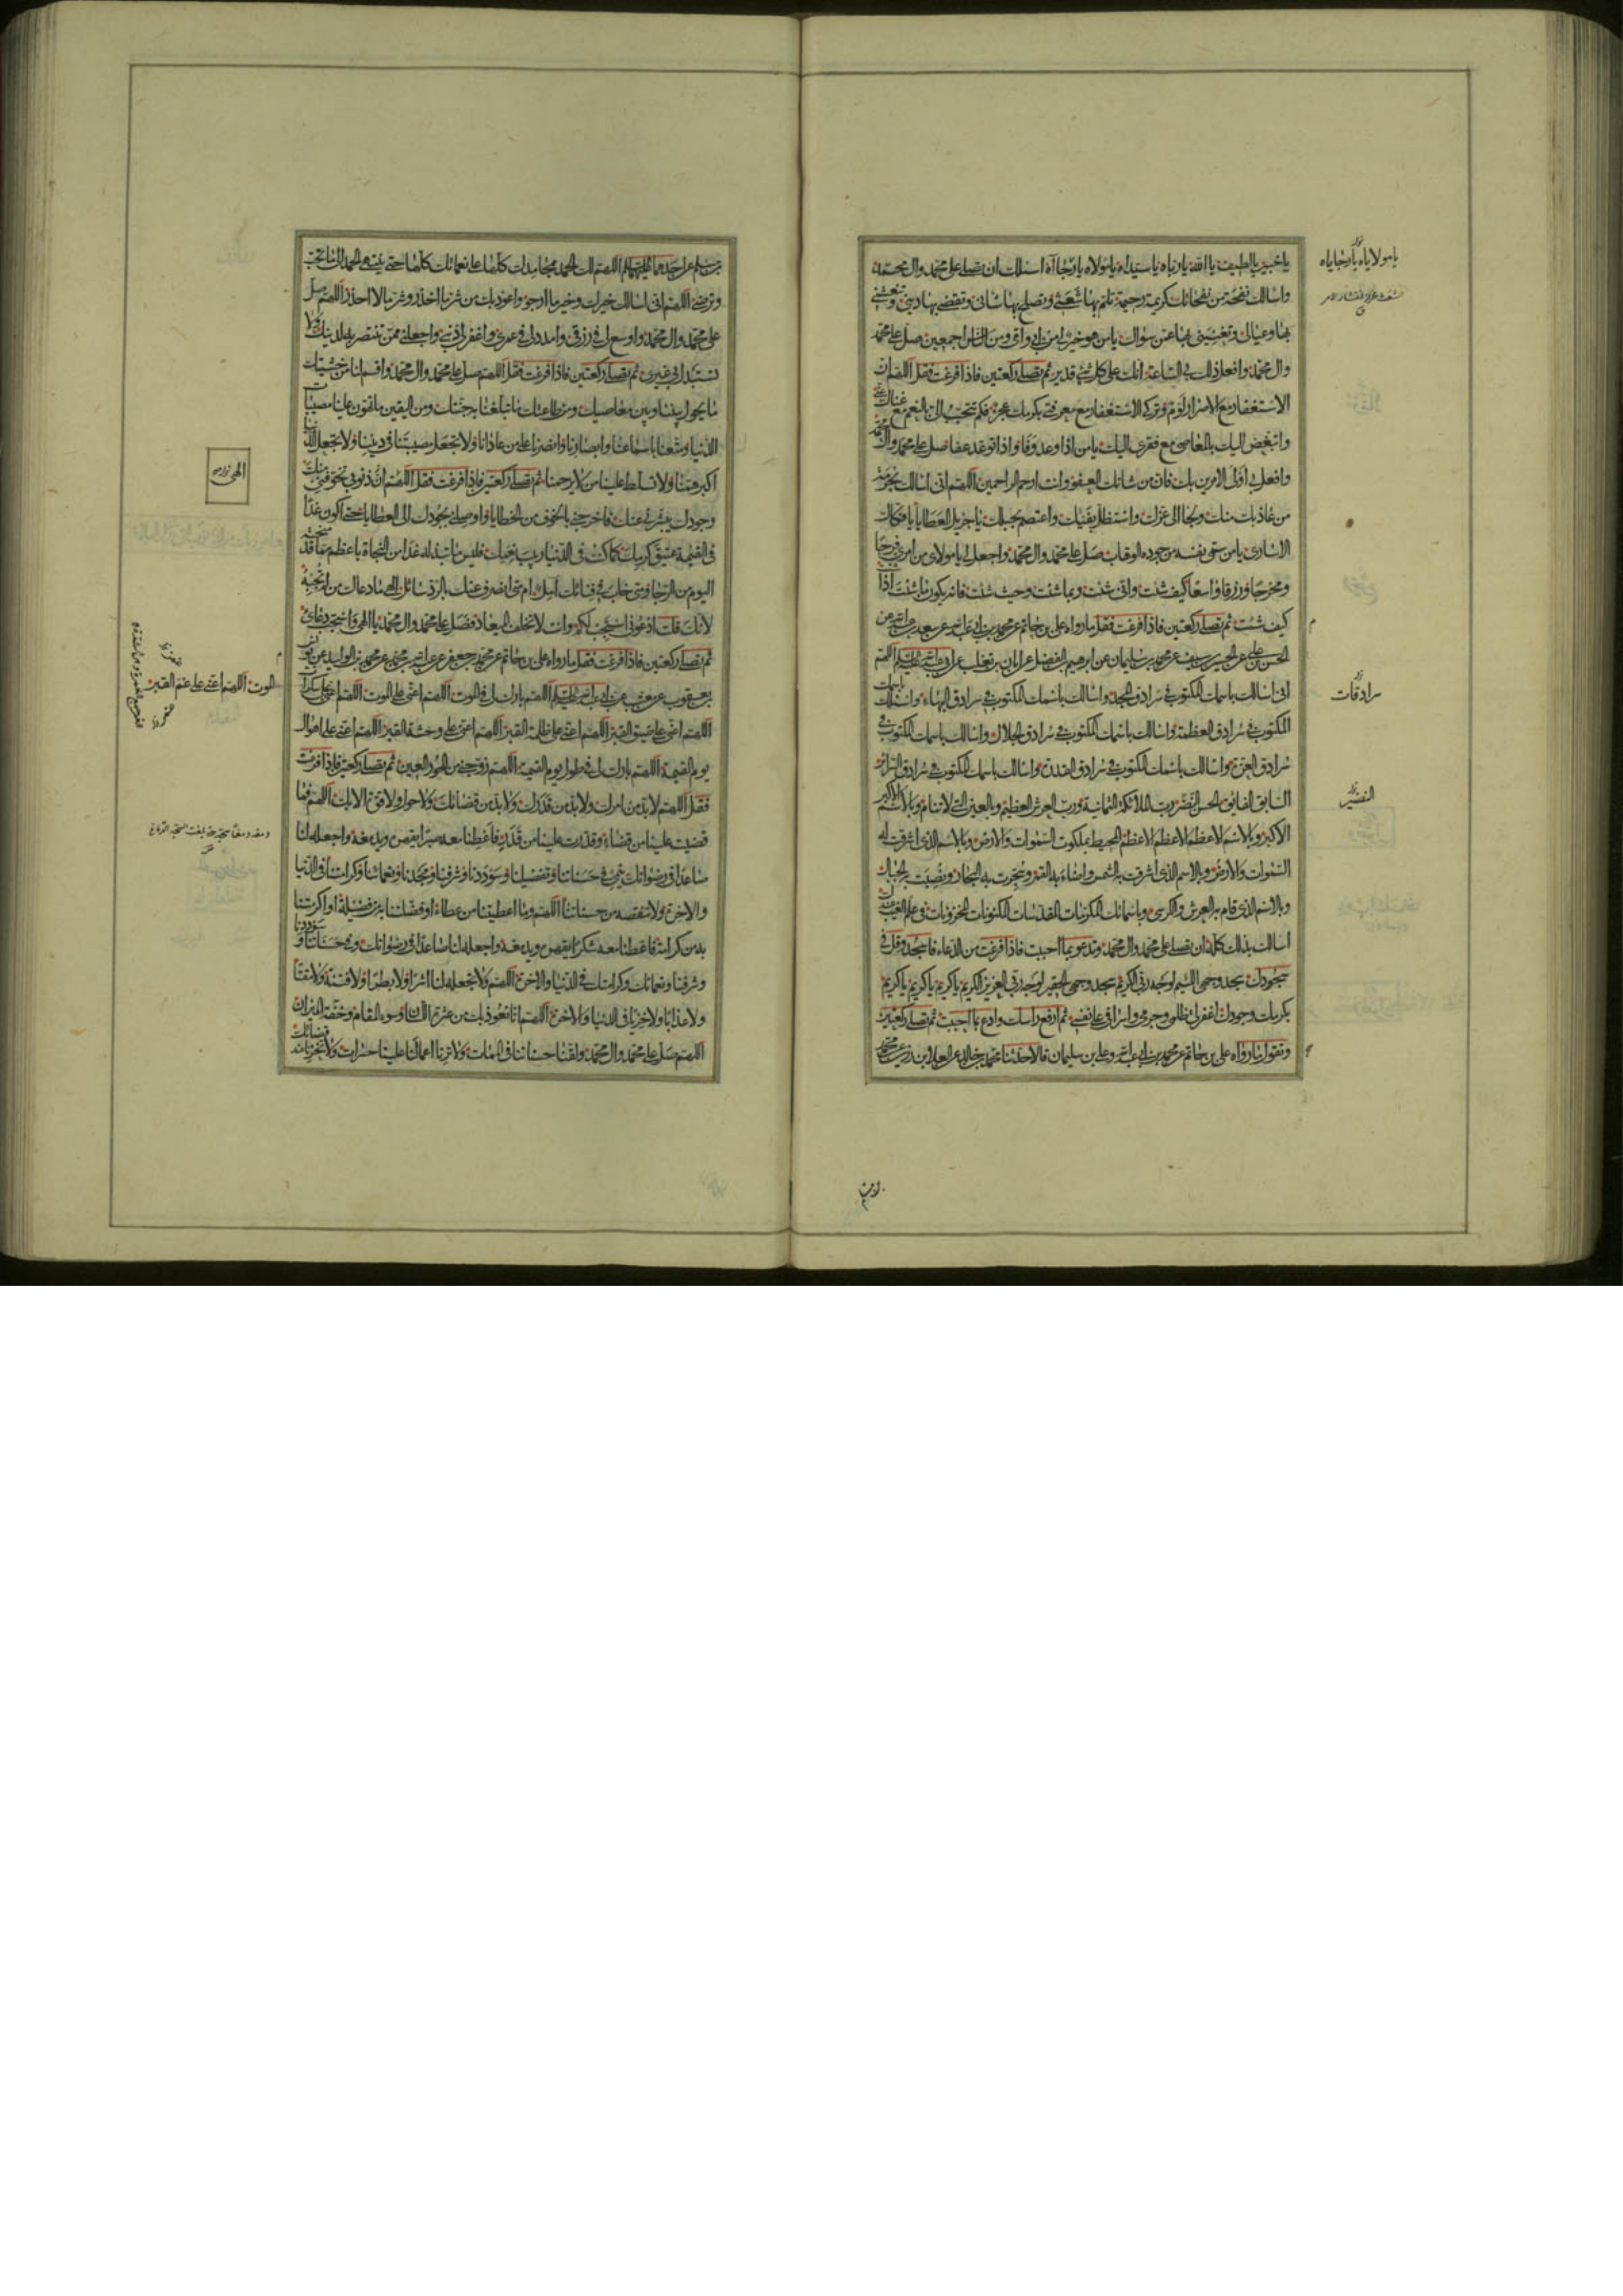 يا خبير يا لطيف يا الله يا رباه يا سيداه يا مولاه يا رجاآه اسئلك ان تصلى على محمد وال محمد
واسالك نفحة من نفحاتك كريمة رحيمة تلم بها شعثى وتصلح بها شانى وتقضى بها دينى وتنعشنى
بها وعيالى وتغنينى بها عمن سواك يا من هو خير لى من ابى وامى ومن الناس اجمعين صل على محمد
وال محمد وافعل ذلك بى الساعة انك على كل شىء قدير ثم تصلى ركعتين فاذا فرغت فقل اللهم ان
الاستغفار مع الاصرار لؤم وتركى الاستغفار مع معرفتى بكرمك عجز فكم تتحبب الى بالنعم مع غناك عنى
واتبغض اليك بالمعاصى مع فقرى اليك يا من اذا وعد وفا واذا توعد عفا صل على محمد وال محمد
وافعل بى اولى الامرين بك فان من شانك العفو وانت ارحم الراحمين اللهم انى اسالك بحرمة
من عاذ بك منك ولجأ الى عزك واستظل بفيئك واعتصم بحبلك يا جزيل العطايا يا فكاك
الاسارى يا من سمى نفسه من جوده الوهاب صل على محمد وال محمد واجعل لى يا مولاى من امرى فرجا
ومخرجا ورزقا واسعا كيف شئت وانى شئت وبما شئت وحيث شئت فانه يكون ما شئت اذا
كيف شئت ثم تصلى ركعتين فاذا فرغت فقل ما رواه على بن حاتم عن محمد بن ابى عبد الله عن سعد بن عبد الله عن
الحسن بن على عن الحسين بن سيف عن محمد بن سليمان عن ابرهيم بن الفضل عن ابان بن تغلب عن ابى عبد الله عليه السلم اللهم
انى اسالك باسمك المكتوب فى سرادق المجد واسالك باسمك المكتوب فى سرادق البهاء واسئلك باسمك
المكتوب فى سرادق العظمة واسالك باسمك المكتوب فى سرادق الجلال واسالك باسمك المكتوب فى
سرادق العزة واسالك باسمك المكتوب فى سرادق القدرة واسالك باسمك المكتوب فى سرادق السرائر
السابق الفائق الحسن النضر رب الملائكة الثمانية ورب العرش العظيم وبالعين التى لا تنام وبالاسم الاكبر
الاكبر وبالاسم الاعظم الاعظم الاعظم المحيط بملكوت السموات والارض وبالاسم الذى اشرقت له
السموات والارض وبالاسم الذى اشرقت به الشمس واضاء به القمر وسجرت به البحار ونصبت به الجبال
وبالاسم الذى قام به العرش والكرسى وباسمائك المكرمات المقدسات المكنونات المخزونات فى علم الغيب عندك
اسالك بذلك كله ان تصلى على محمد وال محمد وتدعو بما احببت فاذا فرغت من الدعاء فاسجد وقل فى
سجودك سجد وجهى اللئيم لوجه ربى الكريم سجد وجهى الحقير لوجه ربى العزيز الكريم يا كريم يا كريم يا كريم
بكرمك وجودك اغفر لى ظلمى وجرمى واسرافى على نفسى ثم ارفع راسك وادع بما احببت ثم تصلى ركعتين
وتقول ما رواه على بن حاتم عن محمد بن ابى عبد الله وعلى بن سليمان قالا حدثنا محمد بن خالد عن العلاء بن رزين عن محمد
يا مولاياه يا رجاياه
سرادقات
النضير
بن مسلم عن احدهما عليهما السلم اللهم لك الحمد بمحامدك كلها على نعمائك كلها حتى ينتهى الحمد الى ما تحب
وترضى اللهم انى اسالك خيرك وخير ما ارجو واعوذ بك من شر ما احذر وشر ما لا احذر اللهم صل
على محمد وال محمد واوسع لى فى رزقى وامدد لى فى عمرى واغفر لى ذنبى واجعلنى ممن تنتصر به لدينك ولا
تستبدل بى غيرى ثم تصلى ركعتين فاذا فرغت فقل اللهم صل على محمد وال محمد واقسم لنا من خشيتك
ما يحول بيننا وبين معاصيك ومن طاعتك ما تبلغنا به جنتك ومن اليقين ما تهون علينا مصيبات
الدنيا ومتعنا باسماعنا وابصارنا وانصرنا على من عادانا ولا تجعل مصيبتنا فى ديننا ولا تجعل الدنيا
اكبر همنا ولا تسلط علينا من لا يرحمنا ثم تصلى ركعتين فاذا فرغت فقل اللهم ان ذنوبى تخوفنى منك
وجودك يبشرنى عنك فاخرجنى بالخوف من الخطايا واوصلنى بجودك الى العطايا حتى اكون غدا
فى القيمة عتيق كرمك كما كنت فى الدنيا ربيب نعمك فليس ما تبذله غدا من النجاة باعظم مما قد منحته
اليوم من الرجا ومتى خاب فى فنائك امل ام متى انصرف عنك بالرد سائل الهى ما دعاك من لم تجبه
لانك قلت ادعونى استجب لكم وانت لا تخلف الميعاد فصل على محمد وال محمد يا الهى واستجب دعائى
ثم تصلى ركعتين فاذا فرغت فقل ما رواه على بن حاتم عن محمد بن جعفر عن عبد الله بن محمد عن محمد بن الوليد عن يونس
بن يعقوب عن ابى عبد الله عليه السلم اللهم بارك لى فى الموت اللهم اعنى على الموت اللهم اعنى على سكرات
اللهم اعنى على ضيق القبر اللهم اعنى على ظلمة القبر اللهم اعنى على وحشة القبر اللهم اعنى على اهوال
يوم القيمة اللهم بارك لى فى طول يوم القيمة اللهم زوجنى من الحور العين ثم تصلى ركعتين فاذا فرغت
فقل اللهم لا بد من امرك ولا بد من قدرك ولا بد من قضائك ولا حول ولا قوة الا بك اللهم فما
قضيت علينا من قضاء وقدرت علينا من قدر فاعطنا معه صبرا يقهره ويدمغه واجعله لنا
صاعدا فى رضوانك ينمى فى حسناتنا وتفضيلنا وسوددنا وشرفنا ومجدنا ونعمائنا وكرامتنا فى الدنيا
والاخرة ولا تنقصه من حسناتنا اللهم وما اعطيتنا من عطاء او فضلتنا به من فضيلة او اكرمتنا
به من كرامة فاعطنا معه شكرا يقهره ويدمغه واجعله لنا صاعدا فى رضوانك وفى حسناتنا وسوددنا
وشرفنا ونعمائك وكرامتك فى الدنيا والاخرة اللهم ولا تجعله لنا اشرا ولا بطرا ولا فتنة ولا مقتا
ولا عذابا ولا خزيا فى الدنيا والاخرة اللهم انا نعوذ بك من عثرة اللسان وسوء المقام وخفة الميزان
اللهم صل على محمد وال محمد ولقنا حسناتنا فى الممات ولا ترنا اعمالنا علينا حسرات ولا تخزنا عند قضائك
الموت اللهم اعنى على غم القبر